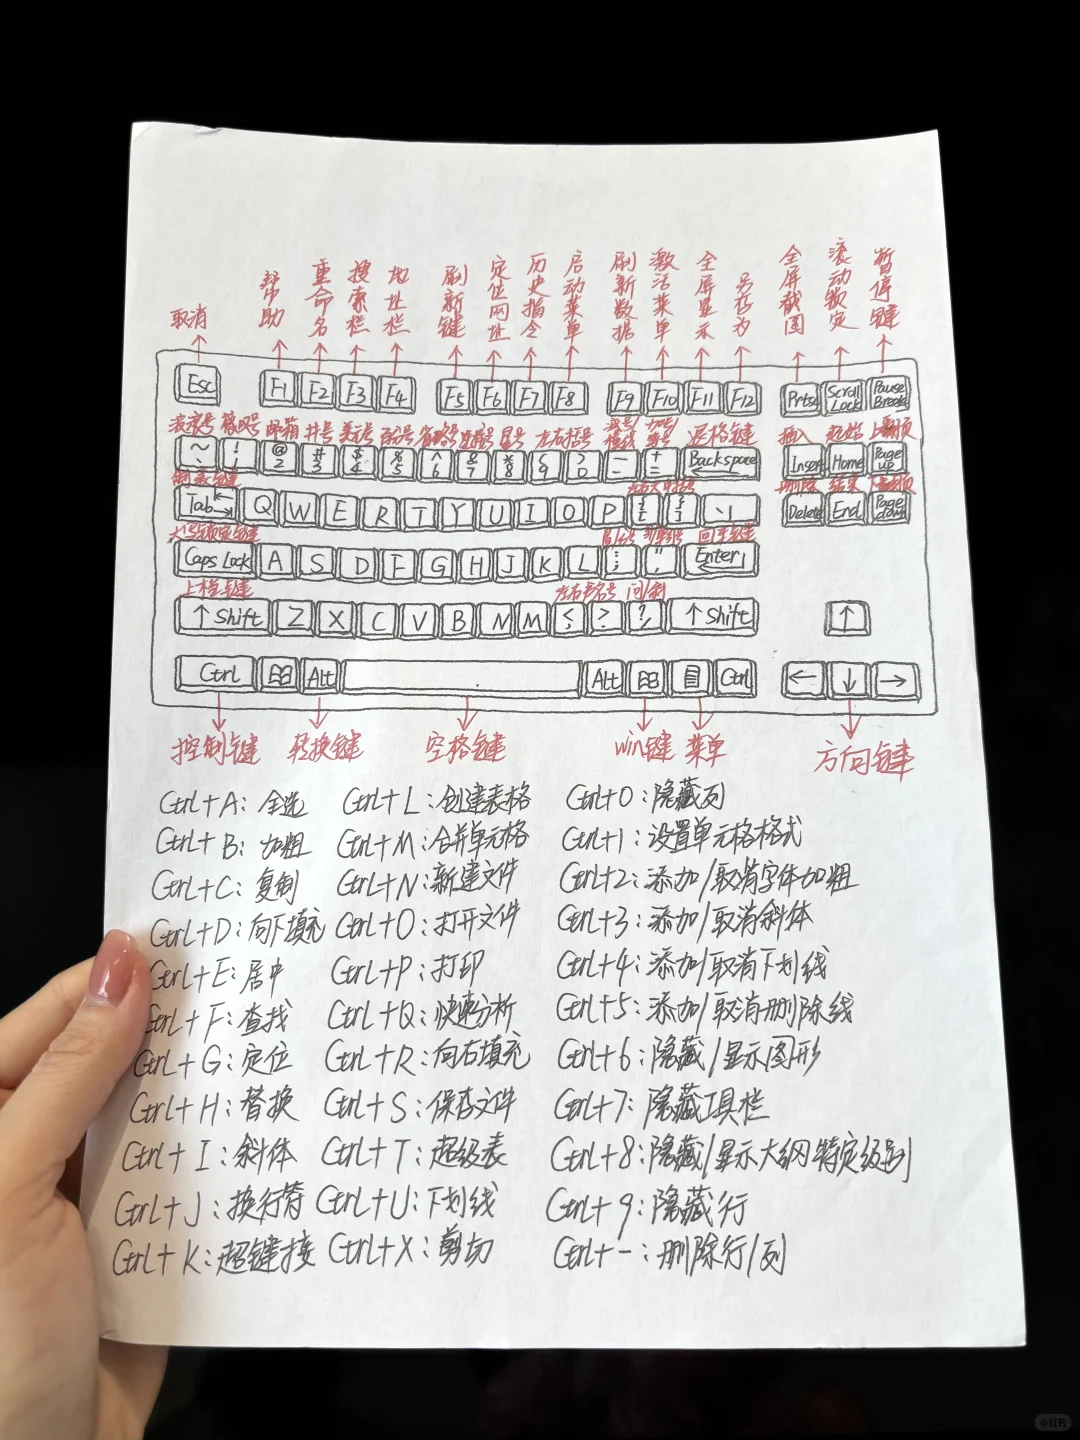 取消 帮助 重命名 搜索栏 地址栏 刷新键 定位网址 历史指令 启动菜单 刷新数据 激活菜单 全屏显示 另存为 全屏截图 滚动锁定 暂停键
Esc F1 F2 F3 F4 F5 F6 F7 F8 F9 F10 F11 F12 Prtsc Scroll Lock Pause Break
波浪号 感叹号 邮箱 井号 美元号 百分号 省略号 星号 左右括号 退格键 插入 起始 上翻页
~ ` ! 1 @ 2 # 3 $ 4 % 5 ^ 6 & 7 * 8 ( 9 ) 0 - - + = Backspace Insert Home Page up
制表键 左右大中括号 删除 结束 下翻页
Tab Q W E R T Y U I O P { [ } ] \ | Delete End Page down
大写锁定键 引号 回车键
Caps Lock A S D F G H J K L : ; " ' Enter
上档键 左右书名号 问/斜
↑ Shift Z X C V B N M < , > . ? / ↑ Shift ↑
Ctrl Alt Alt Ctrl ← ↓ →
控制键 转换键 空格键 win键 菜单 方向键
Ctrl+A: 全选 Ctrl+L: 创建表格 Ctrl+0: 隐藏列
Ctrl+B: 加粗 Ctrl+M: 合并单元格 Ctrl+1: 设置单元格格式
Ctrl+C: 复制 Ctrl+N: 新建文件 Ctrl+2: 添加/取消字体加粗
Ctrl+D: 向下填充 Ctrl+O: 打开文件 Ctrl+3: 添加/取消斜体
Ctrl+E: 居中 Ctrl+P: 打印 Ctrl+4: 添加/取消下划线
Ctrl+F: 查找 Ctrl+Q: 快速分析 Ctrl+5: 添加/取消删除线
Ctrl+G: 定位 Ctrl+R: 向右填充 Ctrl+6: 隐藏/显示图形
Ctrl+H: 替换 Ctrl+S: 保存文件 Ctrl+7: 隐藏工具栏
Ctrl+I: 斜体 Ctrl+T: 超级表 Ctrl+8: 隐藏/显示大纲特定级别
Ctrl+J: 换行符 Ctrl+U: 下划线 Ctrl+9: 隐藏行
Ctrl+K: 超键接 Ctrl+X: 剪切 Ctrl+-: 删除行/列
小红书